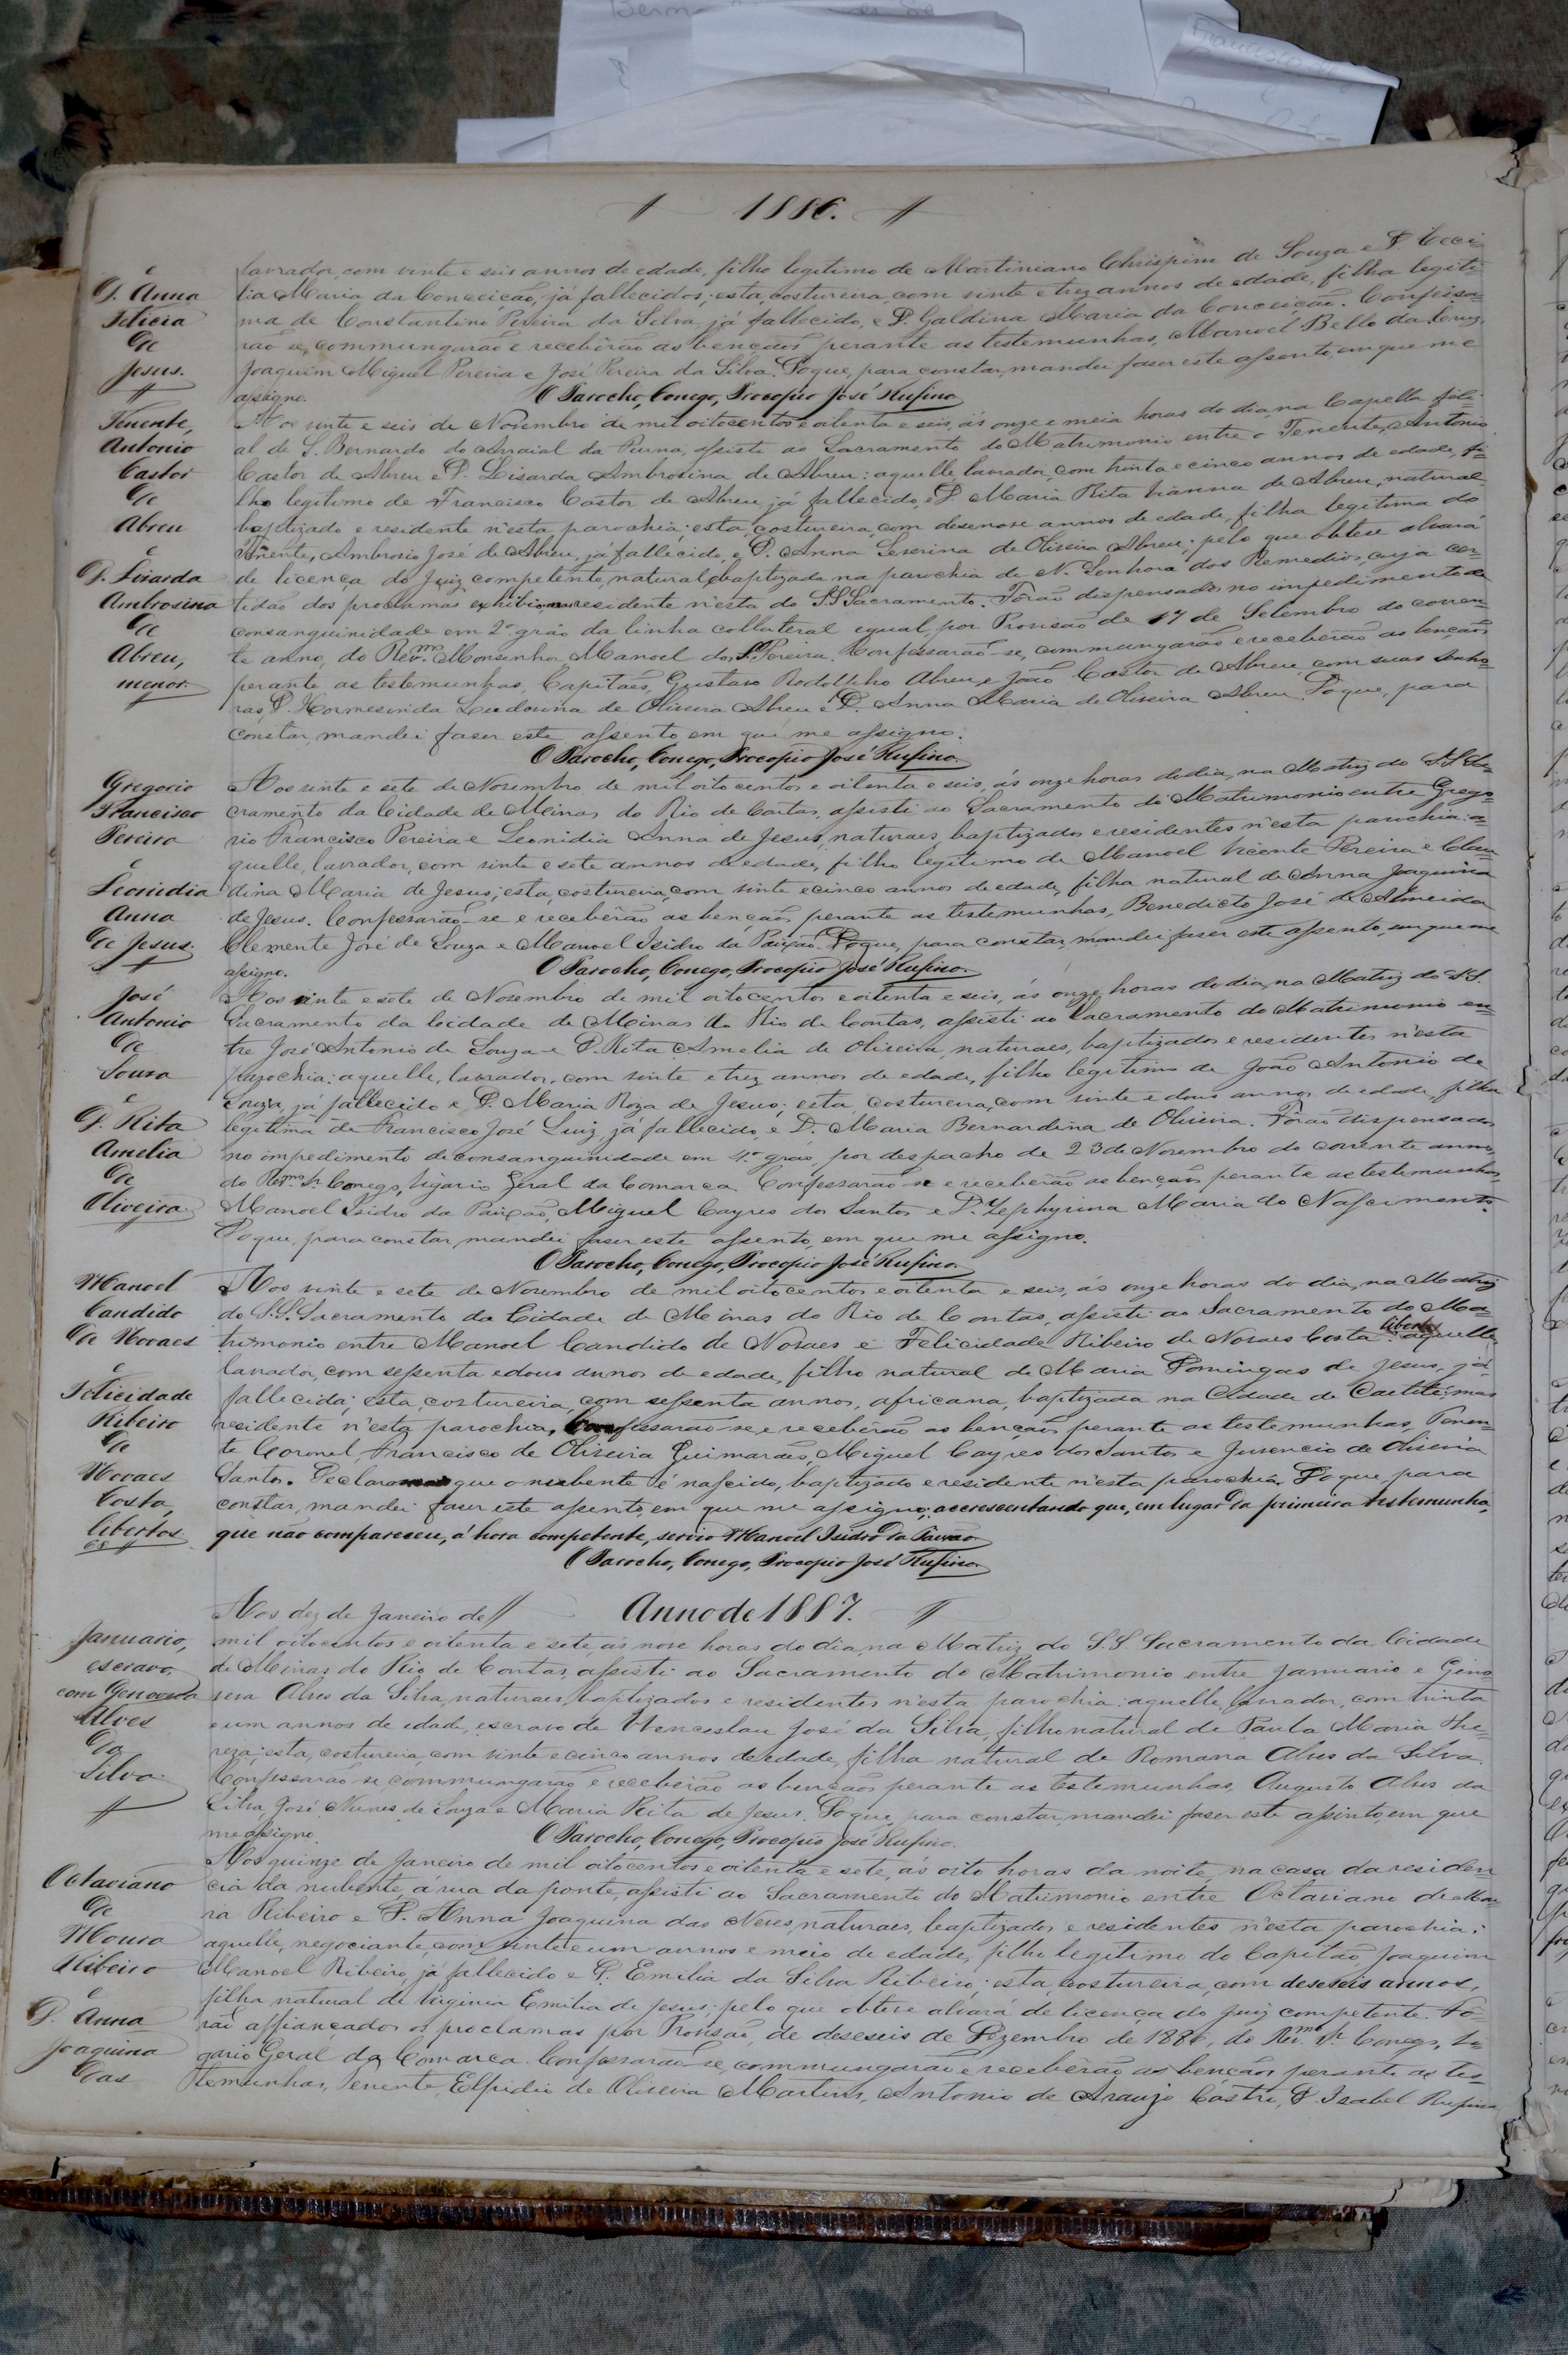 1886.
e
D. Anna
Felicia
de
Jesus.
lavrador, com vinte e seis annos de edade, filho legitimo de Martiniano Chrispim de Souza e D. Ceci-
lia Maria da Conceição, já fallecidos; esta, costureira, com vinte e trez annos de edade, filha legiti-
ma de Constantino Pereira da Silva, já fallecido, e D. Galdina Maria da Conceição. Confessa-
rão-se, commungarão e receberão as bençãos perante as testemunhas, Manoel Bello da Cruz,
Joaquim Miguel Pereira e José Pereira da Silva. Do que, para constar, mandei faser este assento, em que me
assigno. O Parocho, Conego, Procopio José Rufino.
Tenente,
Antonio
Castor
de
Abreu
e
D. Lisarda
Ambrosina
de
Abreu,
menor.
Aos vinte e seis de Novembro de mil oitocentos e oitenta e seis, ás onze e meia horas do dia, na Capella fili-
al de S. Bernardo do Arraial da Furna, assisti ao Sacramento do Matrimonio entre o Tenente, Antonio
Castor de Abreu e D. Lisarda Ambrosina de Abreu: aquelle, lavrador, com trinta e cinco annos de edade, fi-
lho legitimo de Francisco Castor de Abreu, já fallecido, e D. Maria Rita Vianna de Abreu, natural
baptizado e residente n'esta parochia; esta, costureira, com desenove annos de edade, filha legitima do
Tenente, Ambrosio José de Abreu, já fallecido, e D. Anna Severina de Oliveira Abreu; pelo que obteve alvará
de licença do Juiz competente, natural e baptizada na parochia de N. Senhora dos Remedios, cuja cer-
tidão dos proclamas exhibio, residente n'esta do S.S. Sacramento. Forão dispensados no impedimento de
consanguinidade em 2º gráo da linha collateral egual, por Provisão de 17 de Setembro do corren-
te anno, do Revmo. Monsenhor Manoel dos Pereira. Confessarão-se, commungarão e receberão as bençãos
perante as testemunhas, Capitães, Gustavo Rodolpho Abreu e João Castor de Abreu, com suas senho-
ras, D. Hormesinda Leudovina de Oliveira Abreu e D. Anna Maria de Oliveira Abreu. Do que, para
constar, mandei faser este assento em que me assigno.
O Parocho, Conego, Procopio José Rufino.
Gregorio
Francisco
Pereira
e
Leonidia
Anna
de Jesus.
Aos vinte e sete de Novembro de mil oitocentos e oitenta e seis, ás onze horas do dia, na Matriz do S.S. Sa-
cramento da Cidade de Minas do Rio de Contas, assisti ao Sacramento do Matrimonio entre Grego-
rio Francisco Pereira e Leonidia Anna de Jesus, naturaes, baptizados e residentes n'esta parochia: a-
quelle, lavrador, com vinte e sete annos de edade, filho legitimo de Manoel Vicente Pereira e Clau-
dina Maria de Jesus; esta, costureira, com vinte e cinco annos de edade, filha natural de Anna Joaquina
de Jesus. Confessarão-se e receberão as bençãos perante as testemunhas, Benedicto José de Almeida
Clemente José de Souza e Manoel Isidro da Paixão. Do que, para constar, mandei faser este assento, em que me
assigno. O Parocho, Conego, Procopio José Rufino.
José
Antonio
de
Souza
e
D. Rita
Amelia
de
Oliveira
Aos vinte e sete de Novembro de mil oitocentos e oitenta e seis, ás onze horas do dia, na Matriz do S.S.
Sacramento da Cidade de Minas do Rio de Contas, assisti ao Sacramento do Matrimonio en-
tre José Antonio de Souza e D. Rita Amelia de Oliveira, naturaes, baptizados e residentes n'esta
parochia: aquelle, lavrador, com vinte e trez annos de edade, filho legitimo de João Antonio de
Souza, já fallecido e D. Maria Roza de Jesus; esta, costureira, com vinte e dous annos de edade, filha
legitima de Francisco José Luiz, já fallecido, e D. Maria Bernardina de Oliveira. Forão dispensados
no impedimento de consanguinidade em 4º gráo, por despacho de 23 de Novembro do corrente anno,
do Revmo. Sr. Conego, Vigario Geral da Comarca. Confessarão-se e receberão as bençãos perante as testemunhas,
Manoel Isidro da Paixão, Miguel Cayres dos Santos e D. Zephyrina Maria do Nascimento.
Do que, para constar, mandei faser este assento, em que me assigno.
O Parocho, Conego, Procopio José Rufino.
Manoel
Candido
de Novaes
e
Felicidade
Ribeiro
de
Novaes
Costa,
libertos
68
Aos vinte e sete de Novembro de mil oitocentos e oitenta e seis, ás onze horas do dia, na Matriz
do S.S. Sacramento da Cidade de Minas do Rio de Contas, assisti ao Sacramento do Ma-
trimonio entre Manoel Candido de Novaes e Felicidade Ribeiro de Novaes Costa, libertos: aquelle,
lavrador, com sessenta e dous annos de edade, filho natural de Maria Domingas de Jesus, já
fallecida; esta, costureira, com sessenta annos, africana, baptizada na Cidade de Caetité, mas
residente n'esta parochia. Confessarão-se e receberão as bençãos perante as testemunhas, Tenen-
te Coronel, Francisco de Oliveira Guimarães, Miguel Cayres dos Santos e Juvencio de Oliveira
Santos. Declaro que o nubente é nascido, baptizado e residente n'esta parochia. Do que, para
constar, mandei faser este assento, em que me assigno; accrescentando que, em lugar da primeira testemunha,
que não compareceu, á hora competente, servio Manoel Isidro da Paixão
O Parocho, Conego, Procopio José Rufino.
Anno de 1887.
Januario,
escravo,
com Genoveva
Alves
da
Silva.
Aos dez de Janeiro de
mil oitocentos e oitenta e sete, ás nove horas do dia, na Matriz do S.S. Sacramento da Cidade
de Minas do Rio de Contas, assisti ao Sacramento do Matrimonio entre Januario e Geno-
veva Alves da Silva, naturaes, baptizados e residentes n'esta parochia: aquelle, lavrador, com trinta
e um annos de edade, escravo de Wenceslau José da Silva, filho natural de Paula Maria The-
reza; esta, costureira, com vinte e cinco annos de edade, filha natural de Romana Alves da Silva.
Confessarão-se commungarão e receberão as bençãos perante as testemunhas, Augusto Alves da
Silva, José Nunes de Souza e Maria Rita de Jesus. Do que, para constar, mandei faser este assento, em que
me assigno. O Parocho, Conego, Procopio José Rufino.
Octaviano
de
Moura
Ribeiro
e
D. Anna
Joaquina
das
Aos quinze de Janeiro de mil oitocentos e oitenta e sete, ás oito horas da noite, na casa da residen-
cia da nubente, á rua da ponte, assisti ao Sacramento do Matrimonio entre Octaviano de Mou-
ra Ribeiro e D. Anna Joaquina das Neves, naturaes, baptizados e residentes n'esta parochia:
aquelle, negociante, com vinte e um annos e meio de edade, filho legitimo do Capitão, Joaquim
Manoel Ribeiro, já fallecido e D. Emilia da Silva Ribeiro; esta, costureira, com deseseis annos,
filha natural de Virginia Emilia de Jesus; pelo que obteve alvará de licença do Juiz competente. Fo-
rão affiançados os proclamas por Provisão de deseseis de Dezembro de 1886, do Revmo. Sr. Conego, Vi-
gario Geral da Comarca. Confessarão-se, commungarão e receberão as bençãos perante as tes-
temunhas, Tenente, Elpidio de Oliveira Martins, Antonio de Araujo Castro, D. Isabel Rufina